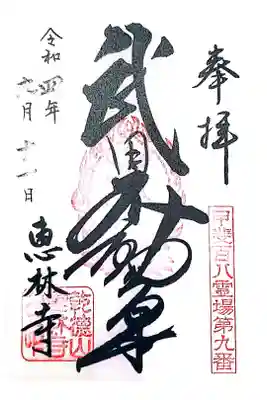 奉拝
甲斐百八霊場第九番
武田不動尊
令和四年
六月十一日
恵林寺
乾徳山
恵林寺